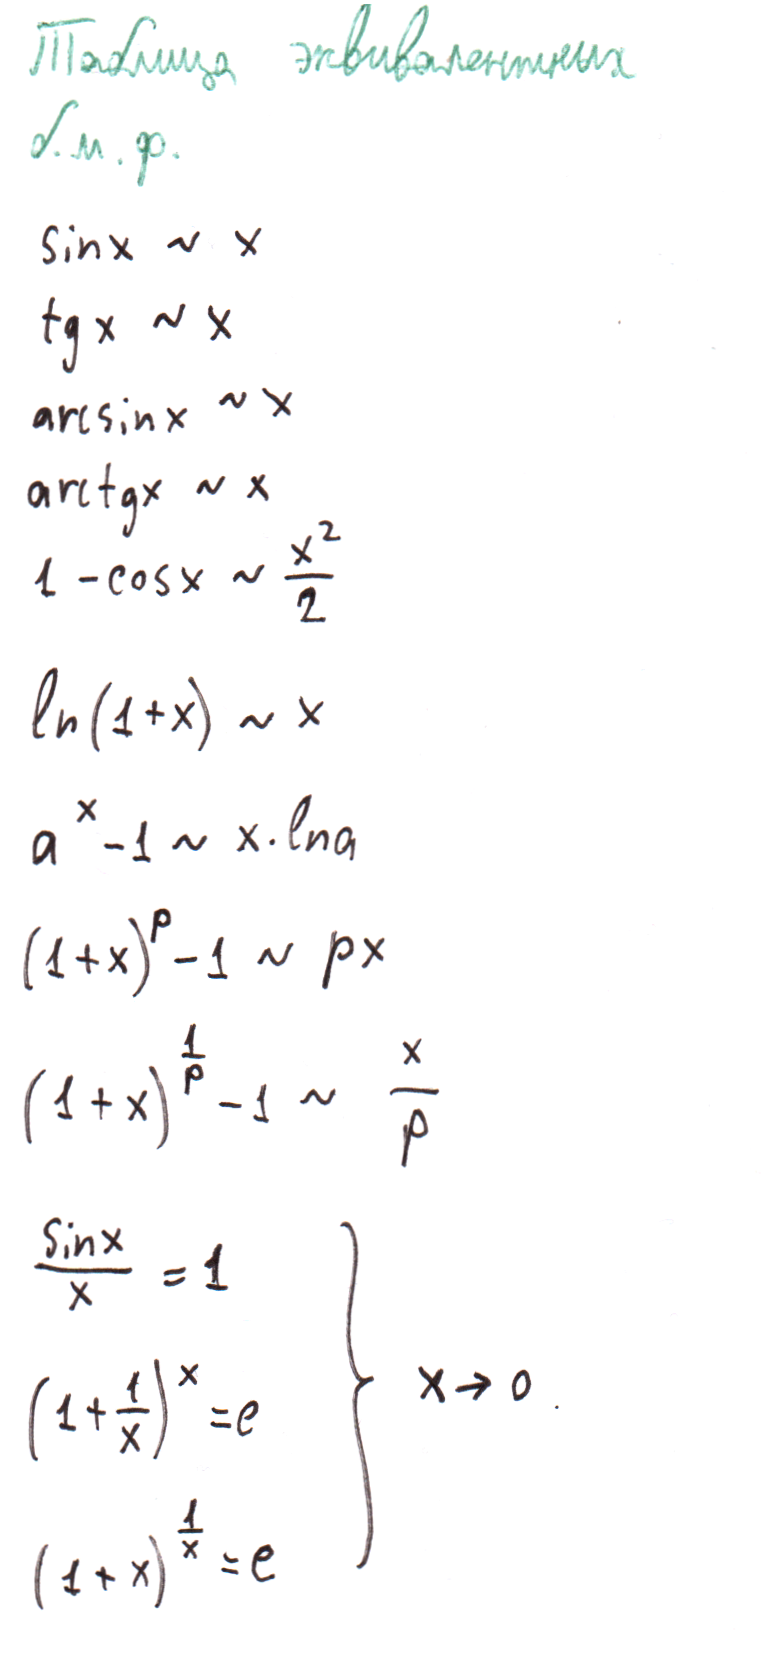 Таблица эквивалентных
б.м.ф.
sinx ~ x
tgx ~ x
arcsinx ~ x
arctgx ~ x
1 - cosx ~ x²/2
ln(1+x) ~ x
aˣ - 1 ~ x·lna
(1+x)ᵖ - 1 ~ px
(1+x)^(1/p) - 1 ~ x/p
sinx/x = 1
(1+1/x)ˣ = e
x → 0.
(1+x)^(1/x) = e